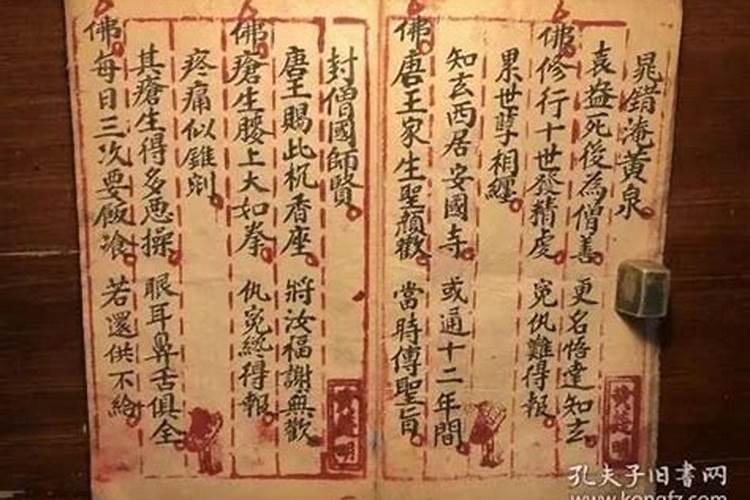 晁錯淹黃泉
袁益死後為僧善 更名悟達知玄
佛修行十世發精虔 寃仇難得報
累世孽相纏
知玄西居安國寺 或通十二年間
佛唐王家生聖顏歡 當時傳聖旨
封僧國師賢
唐王賜此机香座 將汝福謝無歡
佛瘡生腰上大如拳 仇寃終得報
疼痛似錐剜
其瘡生得多惡操 眼耳鼻舌俱全
佛每日三次要飯飡 若還供不給
孔夫子旧书网